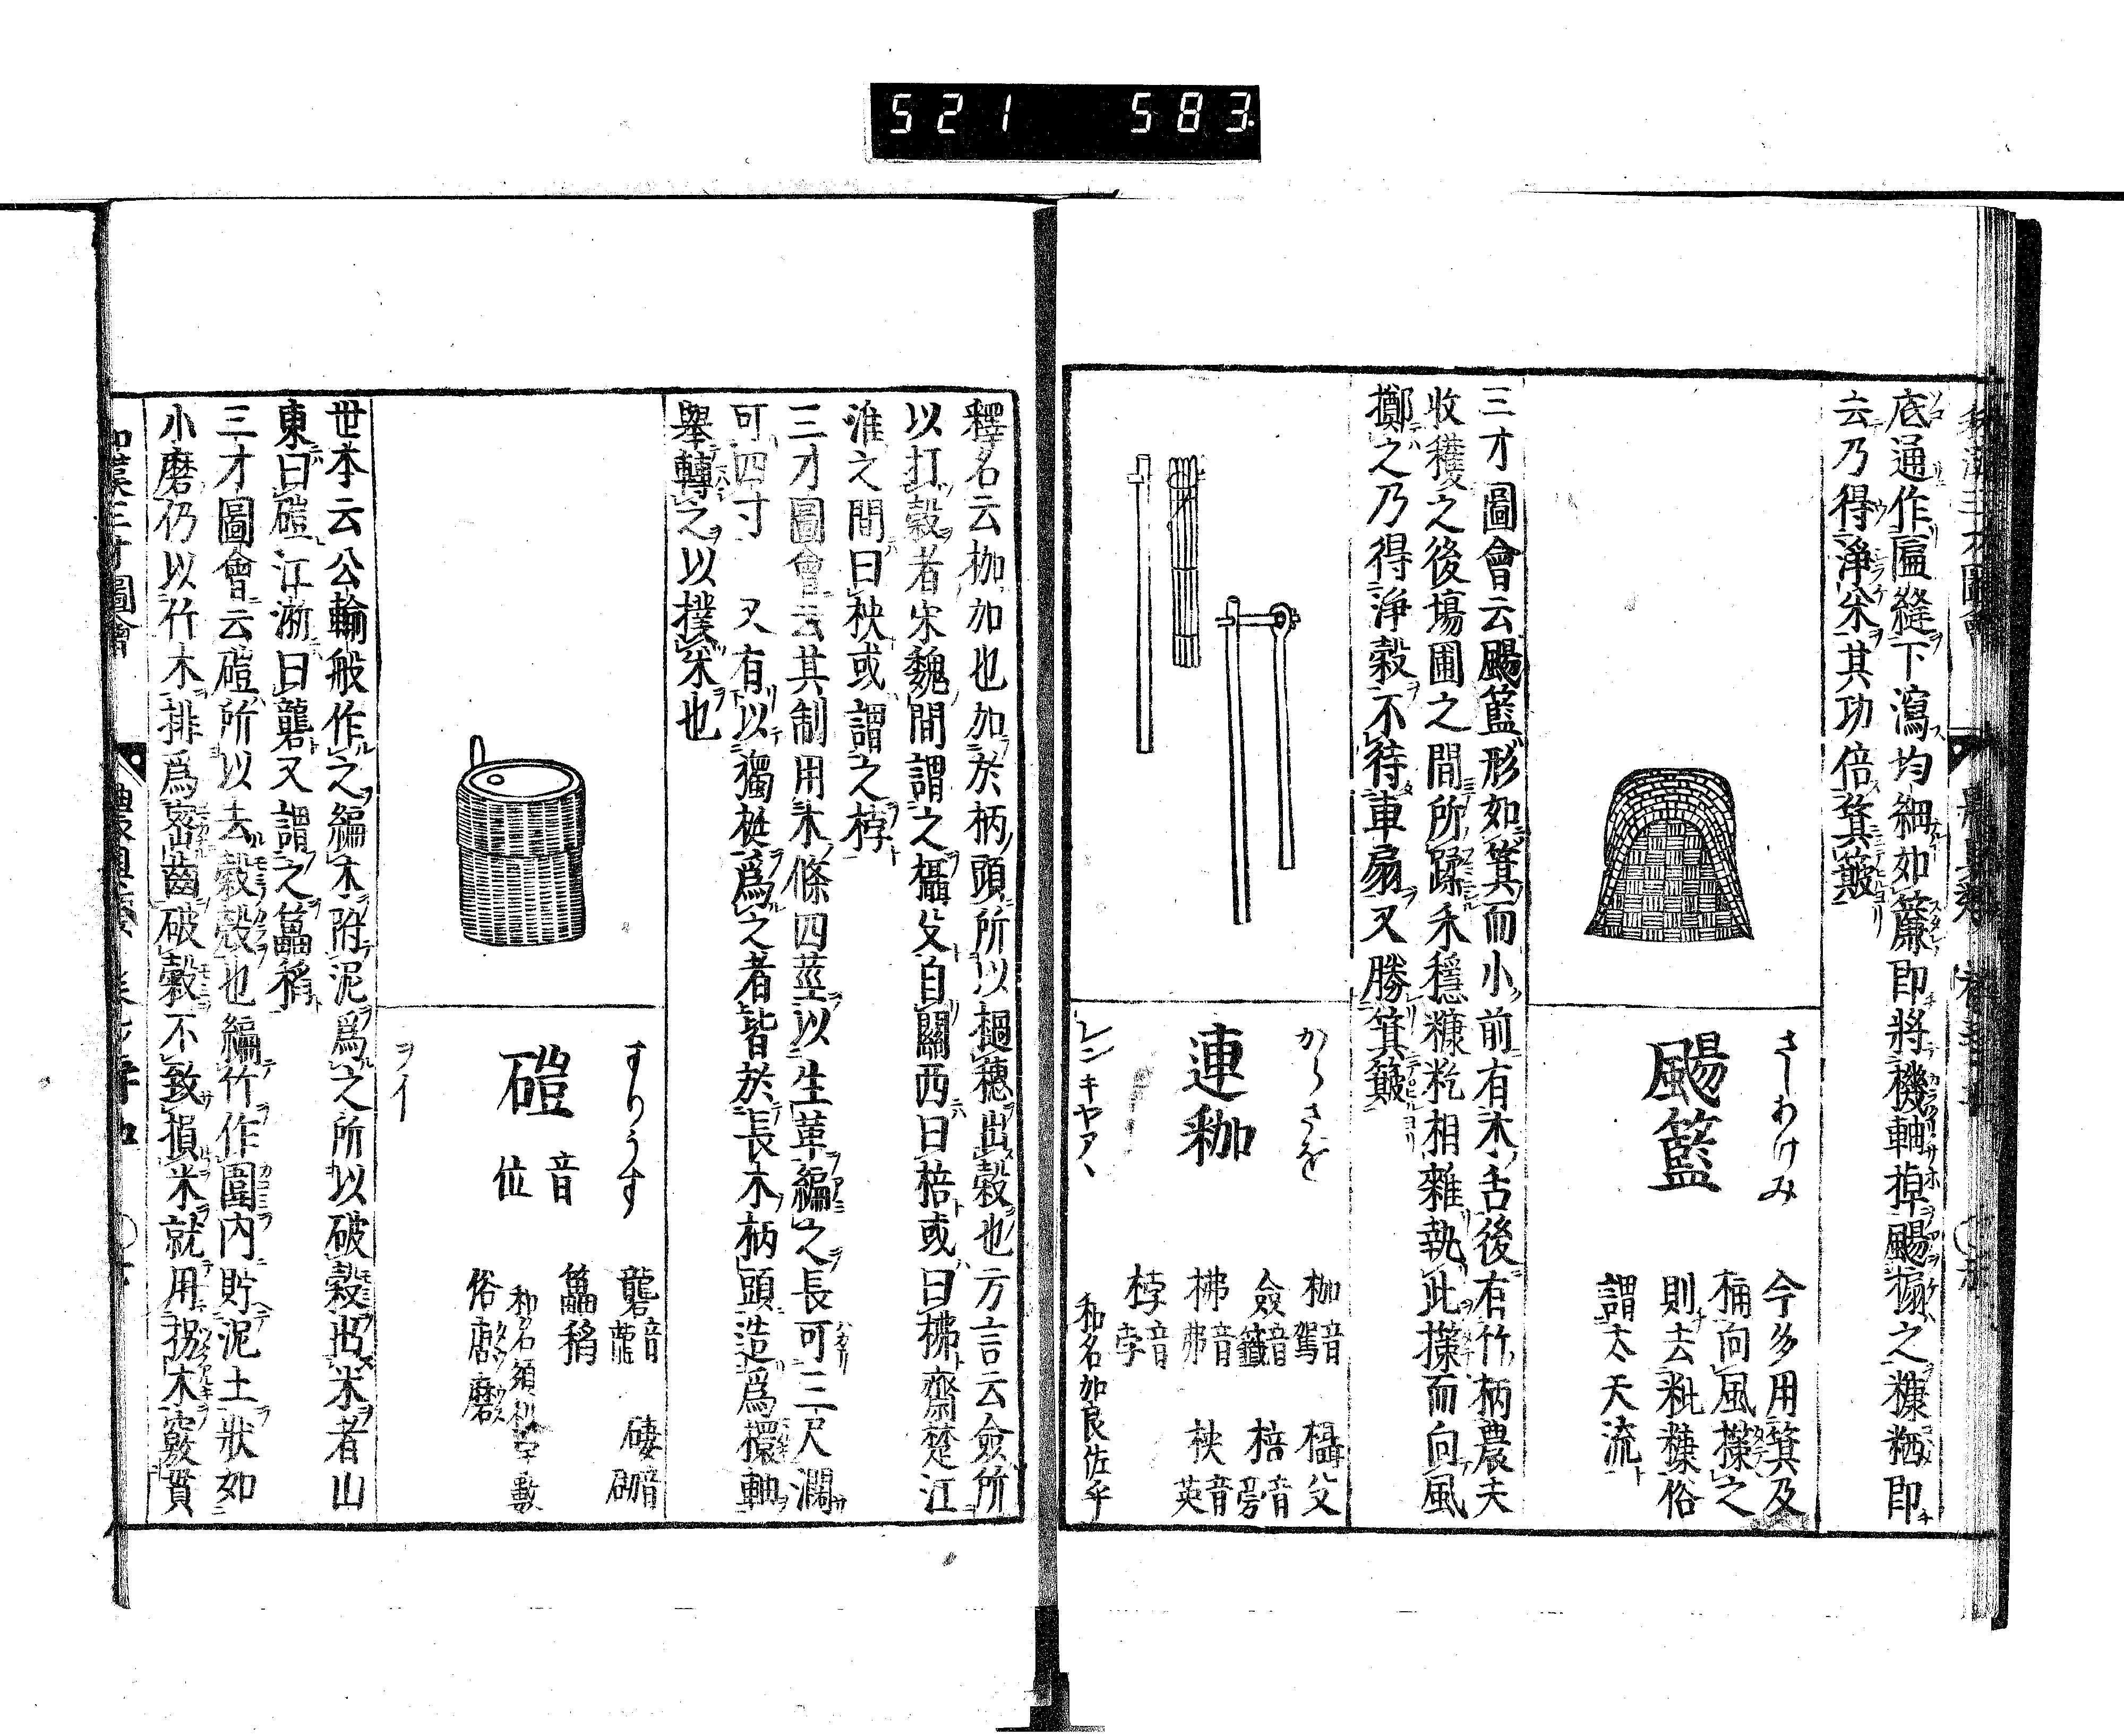 521 583
底通作匾縫下瀉均細如簾即將機軸掉颺搧之糠粞即
云乃得淨米其功倍箕簸
さしあけみ
颺籃
今多用箕及
桶向風擛之
則去粃糠俗
謂太天流
三才圖會云颺籃形如箕而小前有木舌後有竹柄農夫
收穫之後場圃之間所蹂禾穩糠籺相雜執此擛而向風
擲之乃得淨穀不待車扇又勝箕簸
からさを
連枷
レンキヤアヽ
枷音駕 欇殳
僉音籤 棓音旁
柫音弗 柍音英
桲音孛
和名加良佐乎
釋名云枷加也加於柄頭所以檛穗出穀也方言云僉所
以打穀者宋魏間謂之欇殳自關西曰棓或曰柫齊楚江
淮之間曰柍或謂之桲
三才圖會云其制用木條四莖以生革編之長可三尺濶
可四寸 又有以獨梃爲之者皆於長木柄頭造爲擐軸
舉轉之以撲禾也
すりうす
磑
音位
ヲイ
礱音龍
䉶䅹
俗唐磨
世本云公輸般作之編木附泥爲之所以破穀出米者山
東曰磑江浙曰礱又謂之䉶䅹
三才圖會云磑所以去穀殼也編竹作圍內貯泥土狀如
小磨仍以竹木排爲密齒破穀不致損米就用拐木竅貫